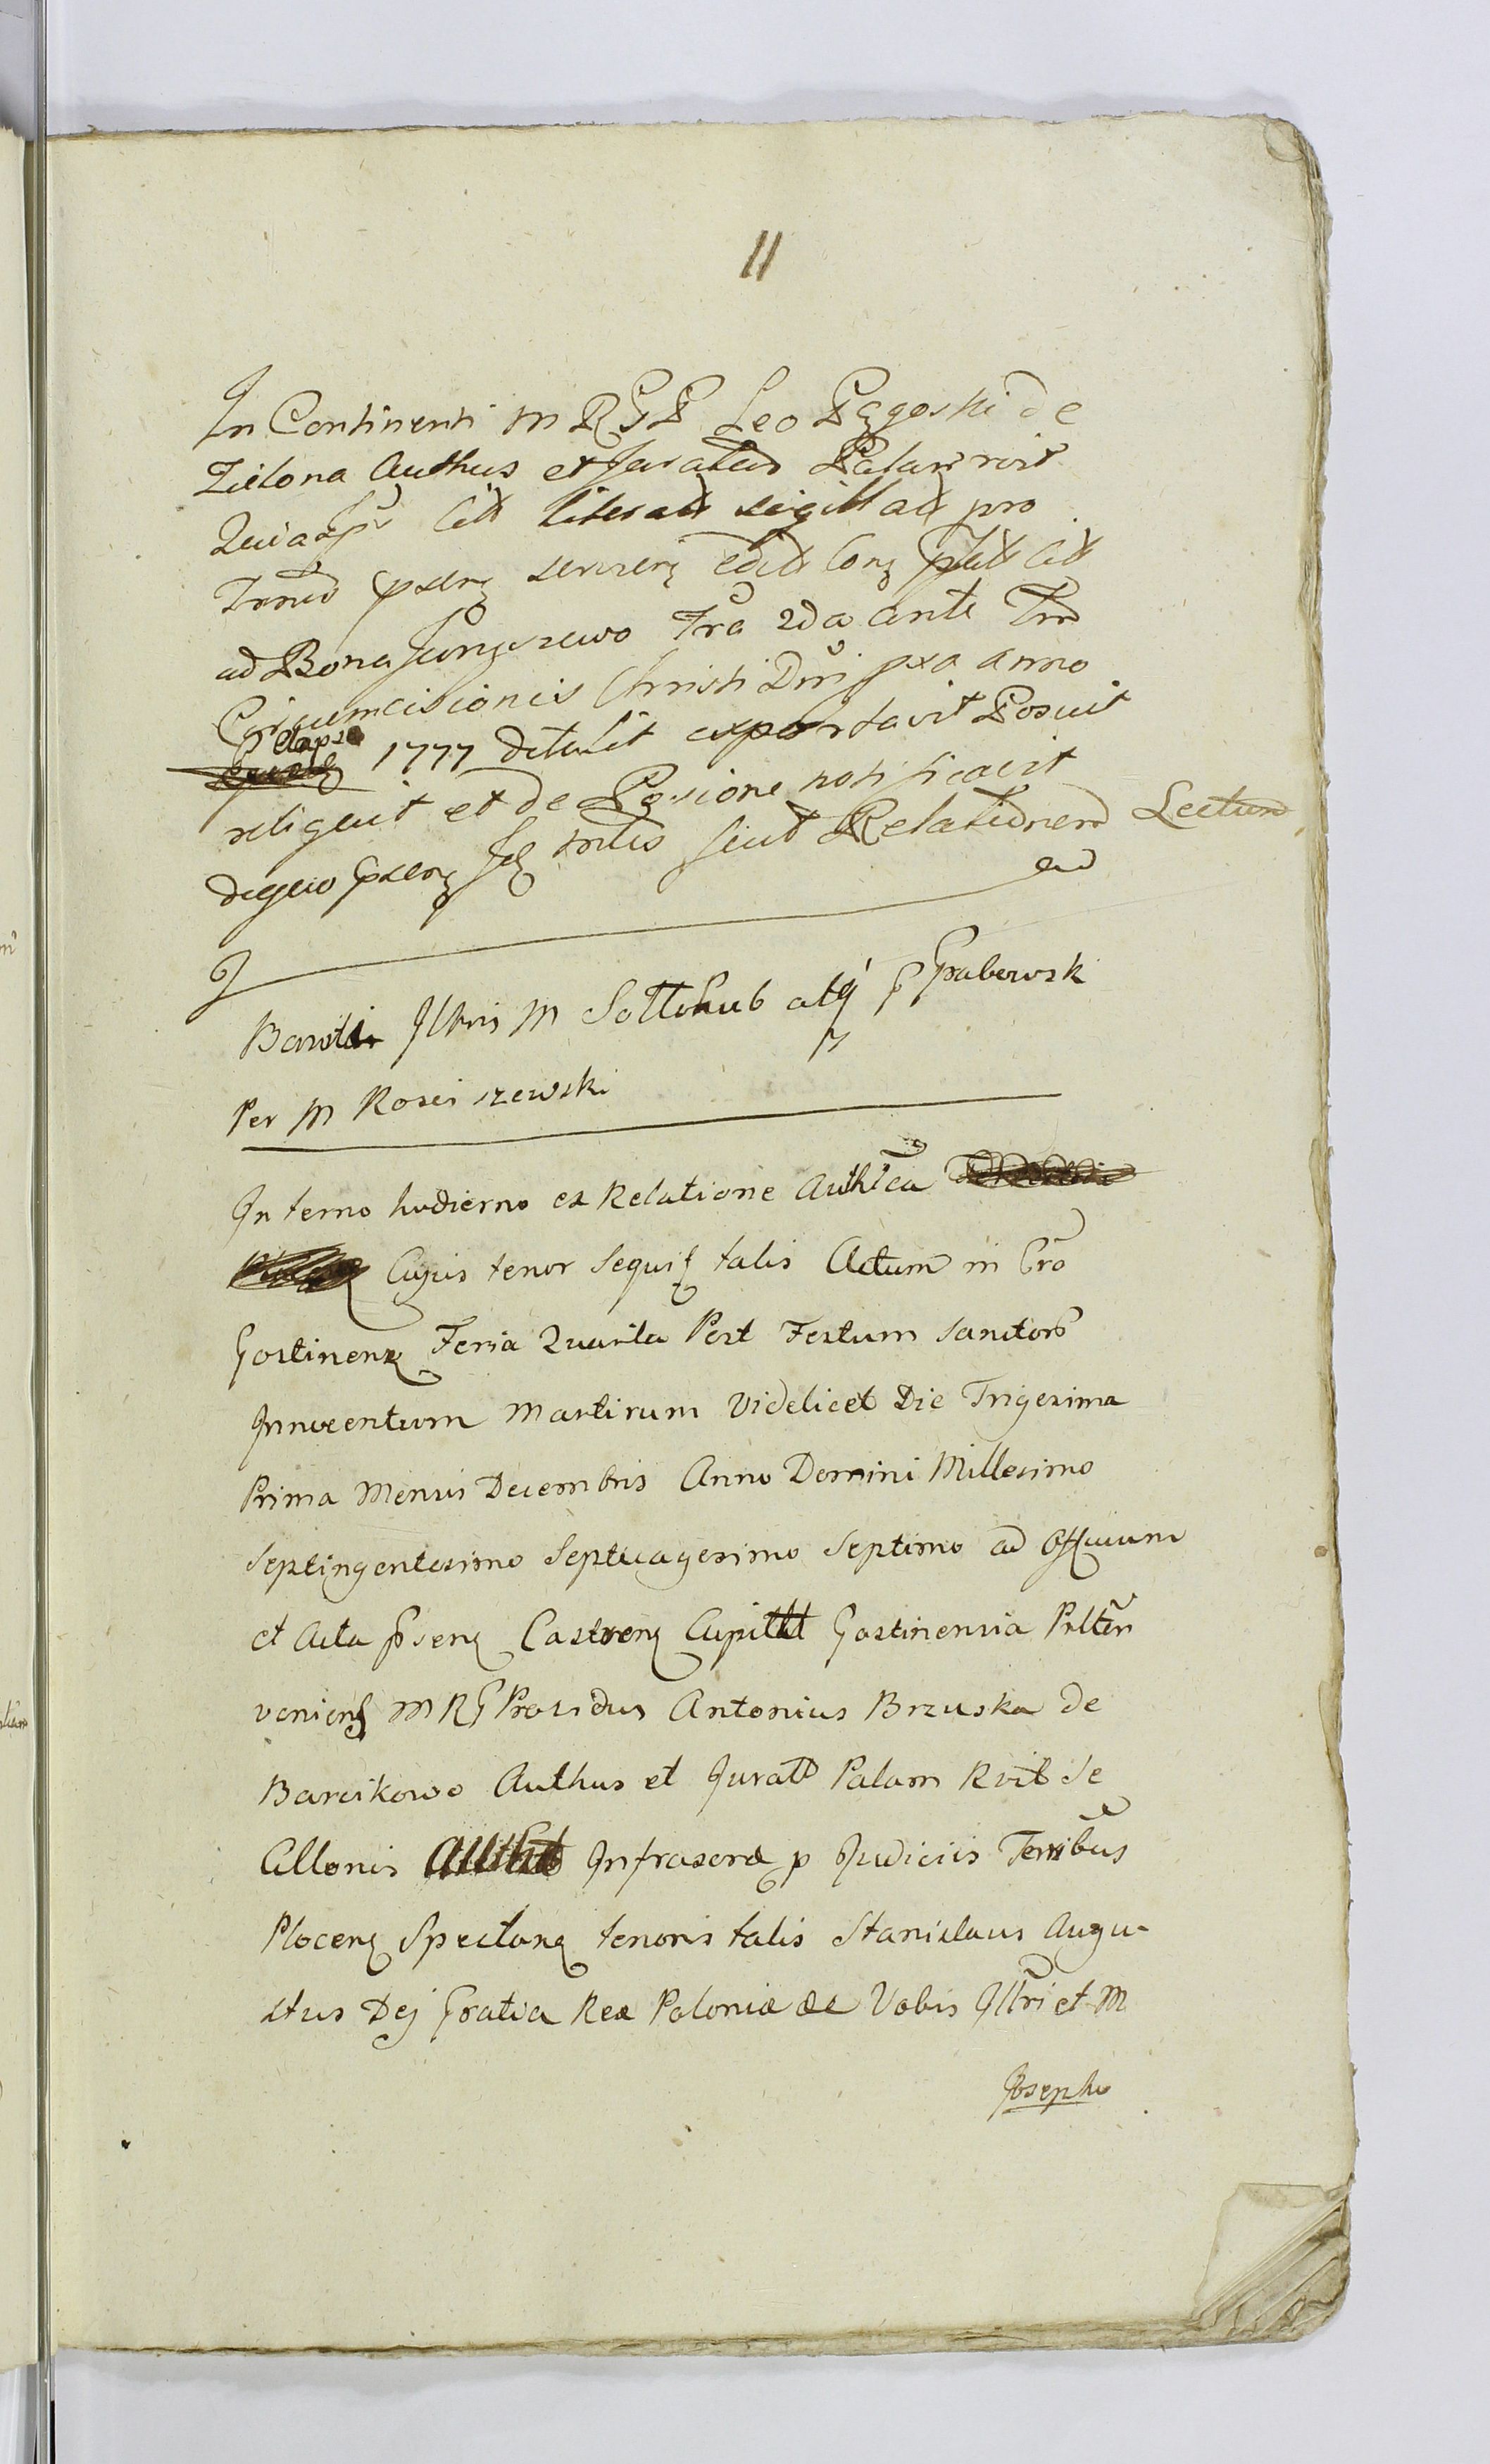 11
In Continenti M R G P Leo Pągoski de
Zielona Authus et Juratus Palam rvit
Quia Citt literatt sigillatt pro
Trnis pxserą editt Conq Citt
ad Bona Junoszewo Fra 2da ante Ftm
Circumcisionis Christi Dni pxa anno
elapso 1777 detulit exportavit Posuit
reliquit et de Posione notificavit
deqeio pxserą Relationem Lectum
Illris M Sołłohub atq p Grabowsk
Per M Rosciszewski
In termo hodierno ex Relatione Auth̃ca
Cujus tenor Sequiṯ talis Actum in Cro
Gostinenꝫ Feria Quarta Post Festum Sanctorꝫ
Innocentum Martirum Videlicet Die Trigesima
Prima Mensis Decembris Anno Domini Millesimo
Septingentesimo Septuagesimo Septimo ad Officium
et Acta p̃senꝫ Castrenꝫ Capitłł Gostinensia Prltẽr
veniens M R G Providus Antonius Brzuska de
Barcikowo Authus et Juratꝰ Palam Rvit Se
Cittonis Infrascrꝫ p Judiciis Terribus
Plocenꝫ Spectanꝫ tenoris talis Stanislaus Augu-
stus Dej Gratia Rex Poloniæ &c Vobis Illri et M
Josepho